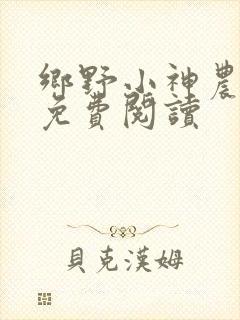 鄉野小神農
免費閱讀
貝克漢姆